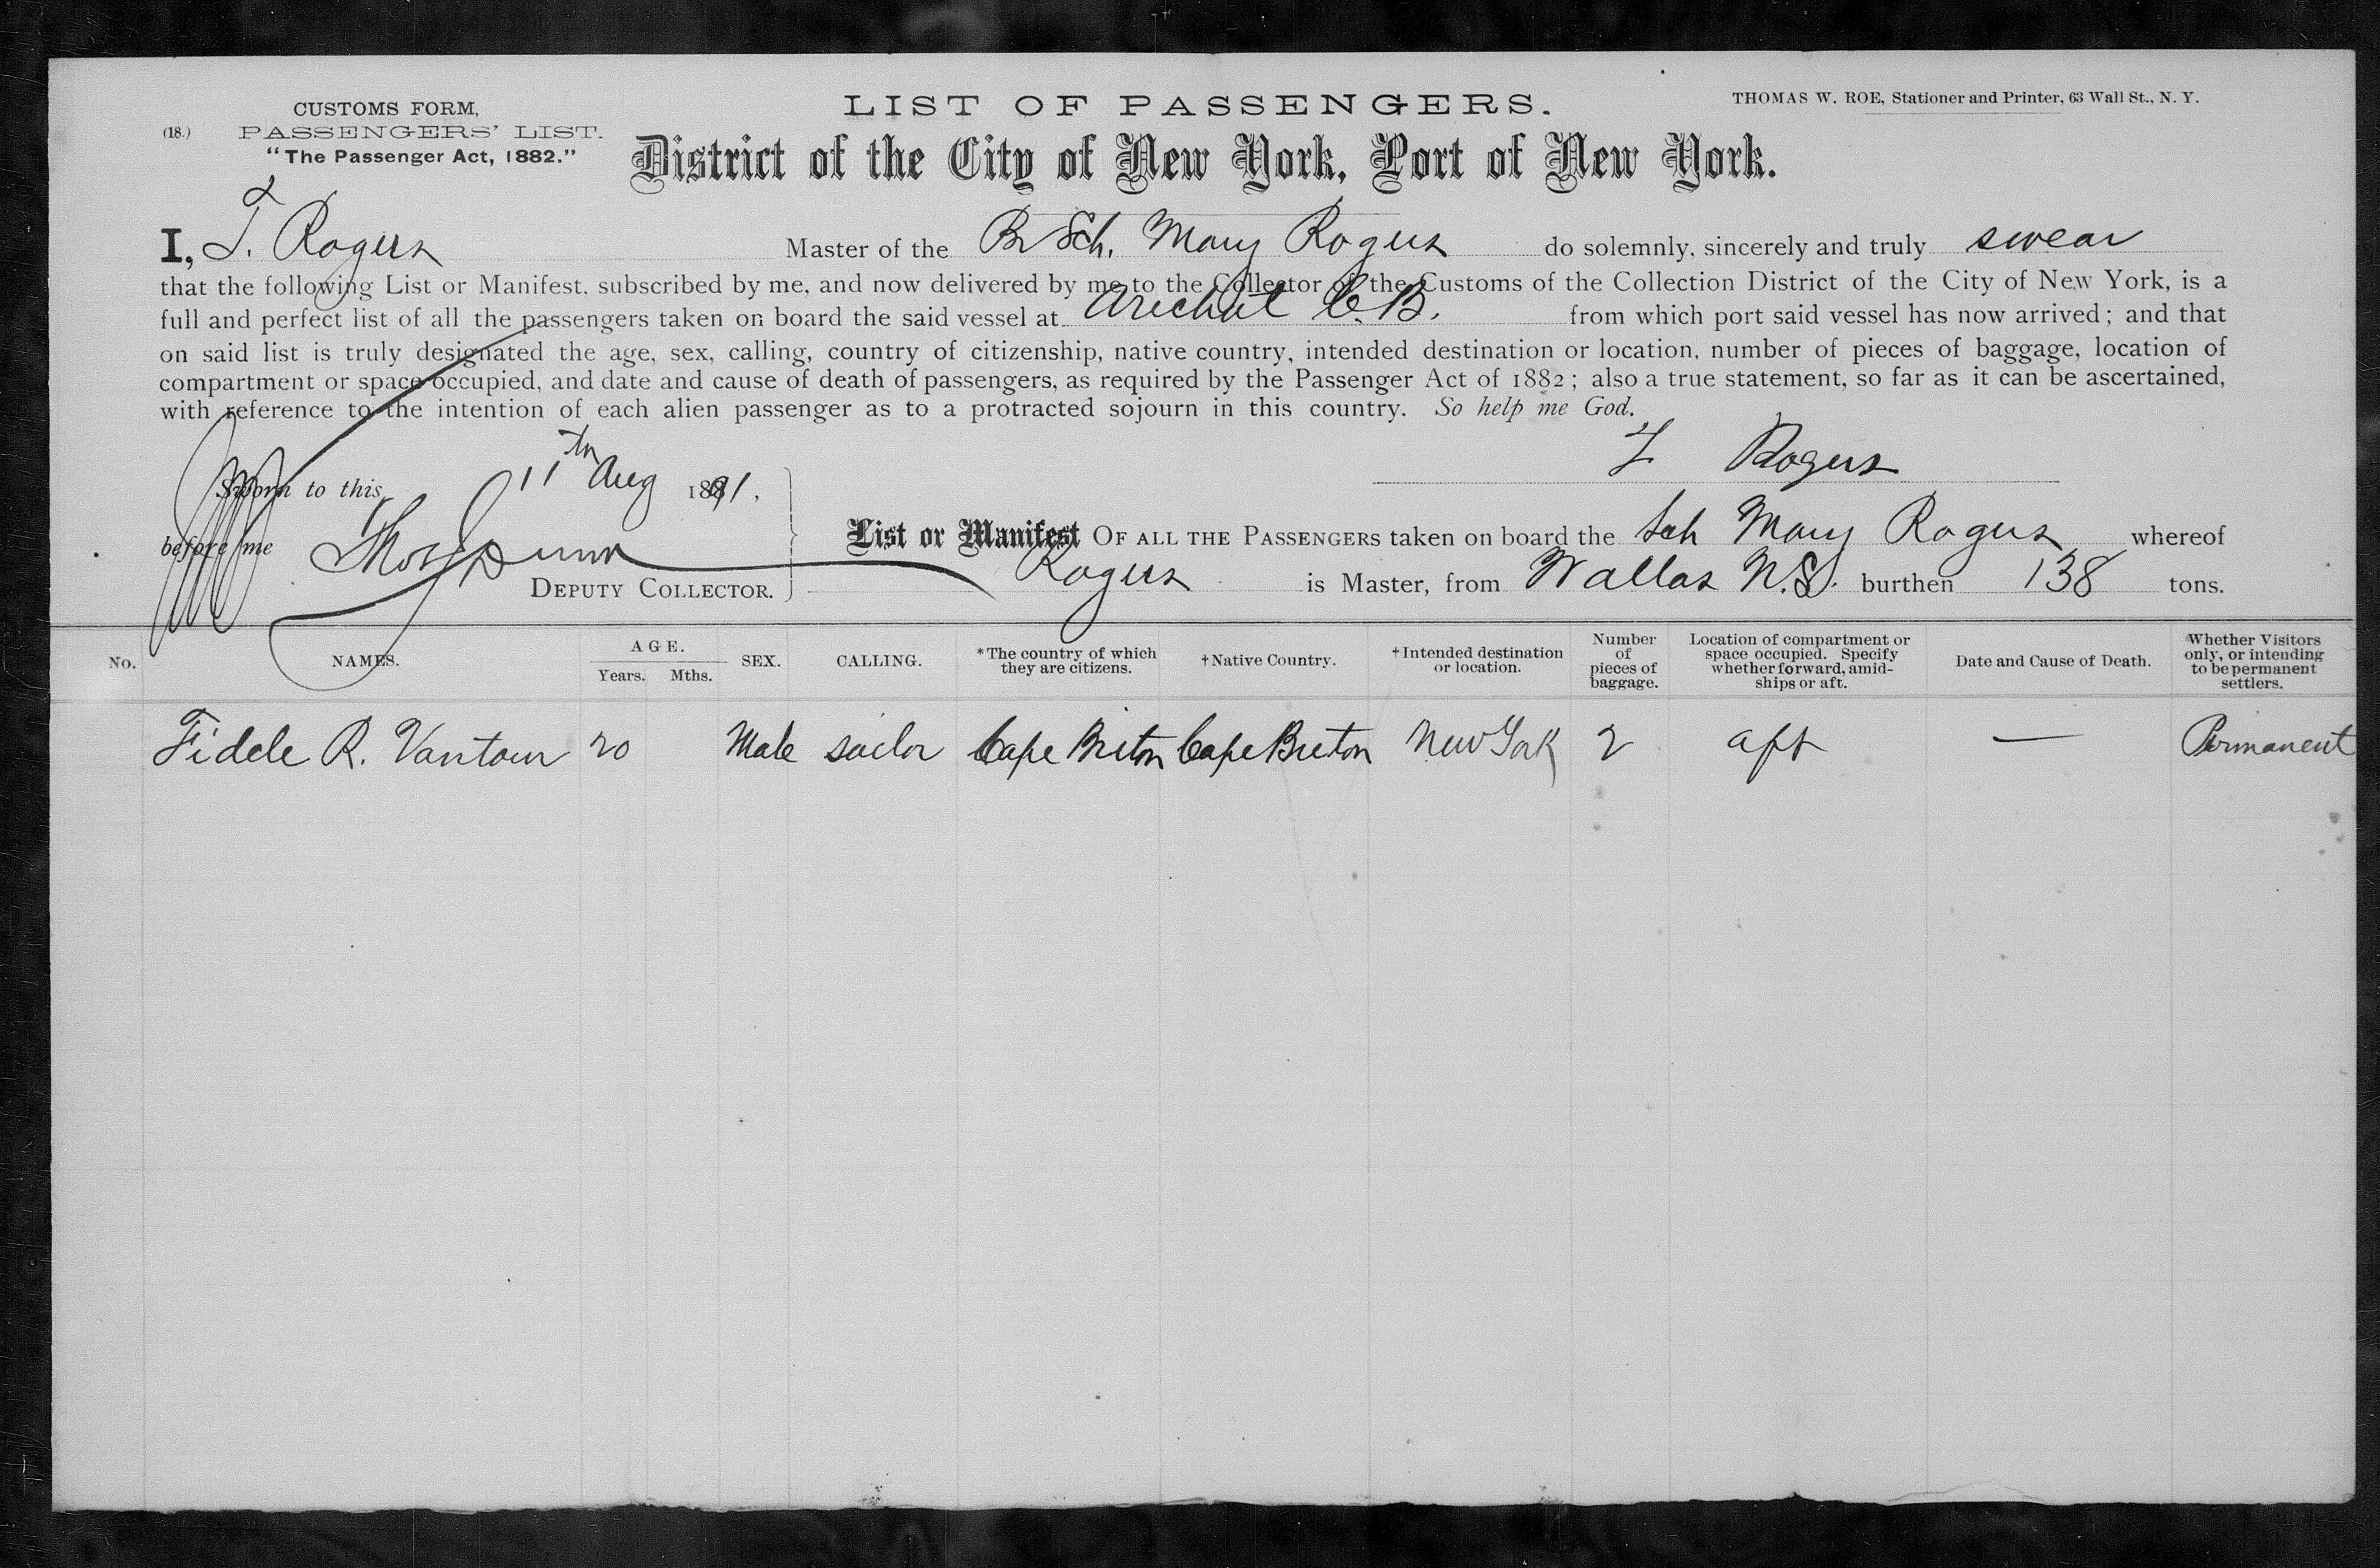 CUSTOMS FORM,
(18.) PASSENGERS' LIST.
"The Passenger Act, 1882."
LIST OF PASSENGERS.
THOMAS W. ROE, Stationer and Printer, 63 Wall St., N. Y.
District of the City of New York, Port of New York.
I, T. Rogers Master of the Br Sch. Mary Rogers do solemnly, sincerely and truly swear
that the following List or Manifest, subscribed by me, and now delivered by me to the Collector of the Customs of the Collection District of the City of New York, is a
full and perfect list of all the passengers taken on board the said vessel at Arichat C.B. from which port said vessel has now arrived; and that
on said list is truly designated the age, sex, calling, country of citizenship, native country, intended destination or location, number of pieces of baggage, location of
compartment or space occupied, and date and cause of death of passengers, as required by the Passenger Act of 1882; also a true statement, so far as it can be ascertained,
with reference to the intention of each alien passenger as to a protracted sojourn in this country. So help me God.
Rogers
Sworn to this 11th Aug 1891.
before me Thos Dunn
DEPUTY COLLECTOR.
List or Manifest OF ALL THE PASSENGERS taken on board the Sch Mary Rogers whereof
Rogers is Master, from Wallas N.S. burthen 138 tons.
No. NAMES. AGE. Years. Mths. SEX. CALLING. *The country of which they are citizens. †Native Country. †Intended destination or location. Number of pieces of baggage. Location of compartment or space occupied. Specify whether forward, amidships or aft. Date and Cause of Death. Whether Visitors only, or intending to be permanent settlers.
Fidele R. Vantour 20 Male sailor Cape Briton Cape Breton New York 2 aft — Permanent